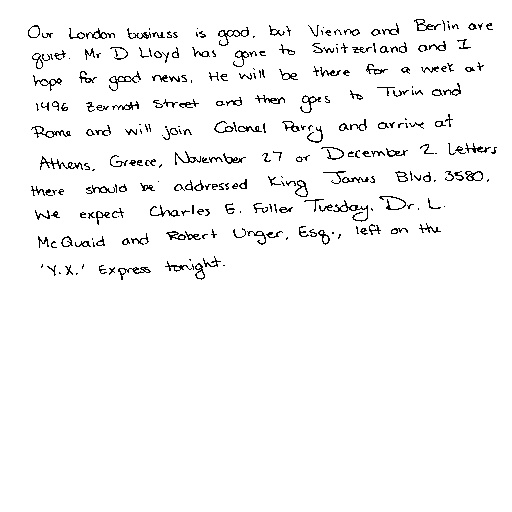 Our London business is good, but Vienna and Berlin are
quiet. Mr D Lloyd has gone to Switzerland and I
hope for good news. He will be there for a week at
1496 Zermott Street and then goes to Turin and
Rome and will join Colonel Parry and arrive at
Athens, Greece, November 27 or December 2. Letters
there should be addressed King James Blvd. 3580.
We expect Charles E. Fuller Tuesday. Dr. L.
McQuaid and Robert Unger, Esq., left on the
'Y.X.' Express tonight.